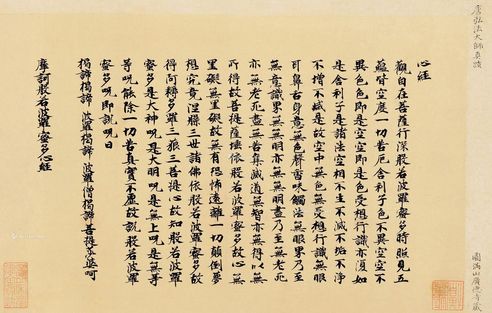 唐弘法大師真蹟
園満山廣德寺蔵
心経
觀自在菩薩行深般若波羅蜜多時照見五
蘊皆空度一切苦厄舍利子色不異空空不
異色色即是空空即是色受想行識亦復如
是舍利子是諸法空相不生不滅不垢不淨
不增不減是故空中無色無受想行識無眼
耳鼻舌身意無色聲香味觸法無眼界乃至
無意識界無無明亦無無明盡乃至無老死
亦無老死盡無苦集滅道無智亦無得以無
所得故菩提薩埵依般若波羅蜜多故心無
罣礙無罣礙故無有恐怖遠離一切顛倒夢
想究竟涅槃三世諸佛依般若波羅蜜多故
得阿耨多羅三藐三菩提故知般若波羅
蜜多是大神呪是大明呪是無上呪是無等
等呪能除一切苦真實不虛故說般若波羅
蜜多呪即說呪曰
揭諦揭諦 波羅揭諦 波羅僧揭諦 菩提莎婆呵
摩訶般若波羅蜜多心経